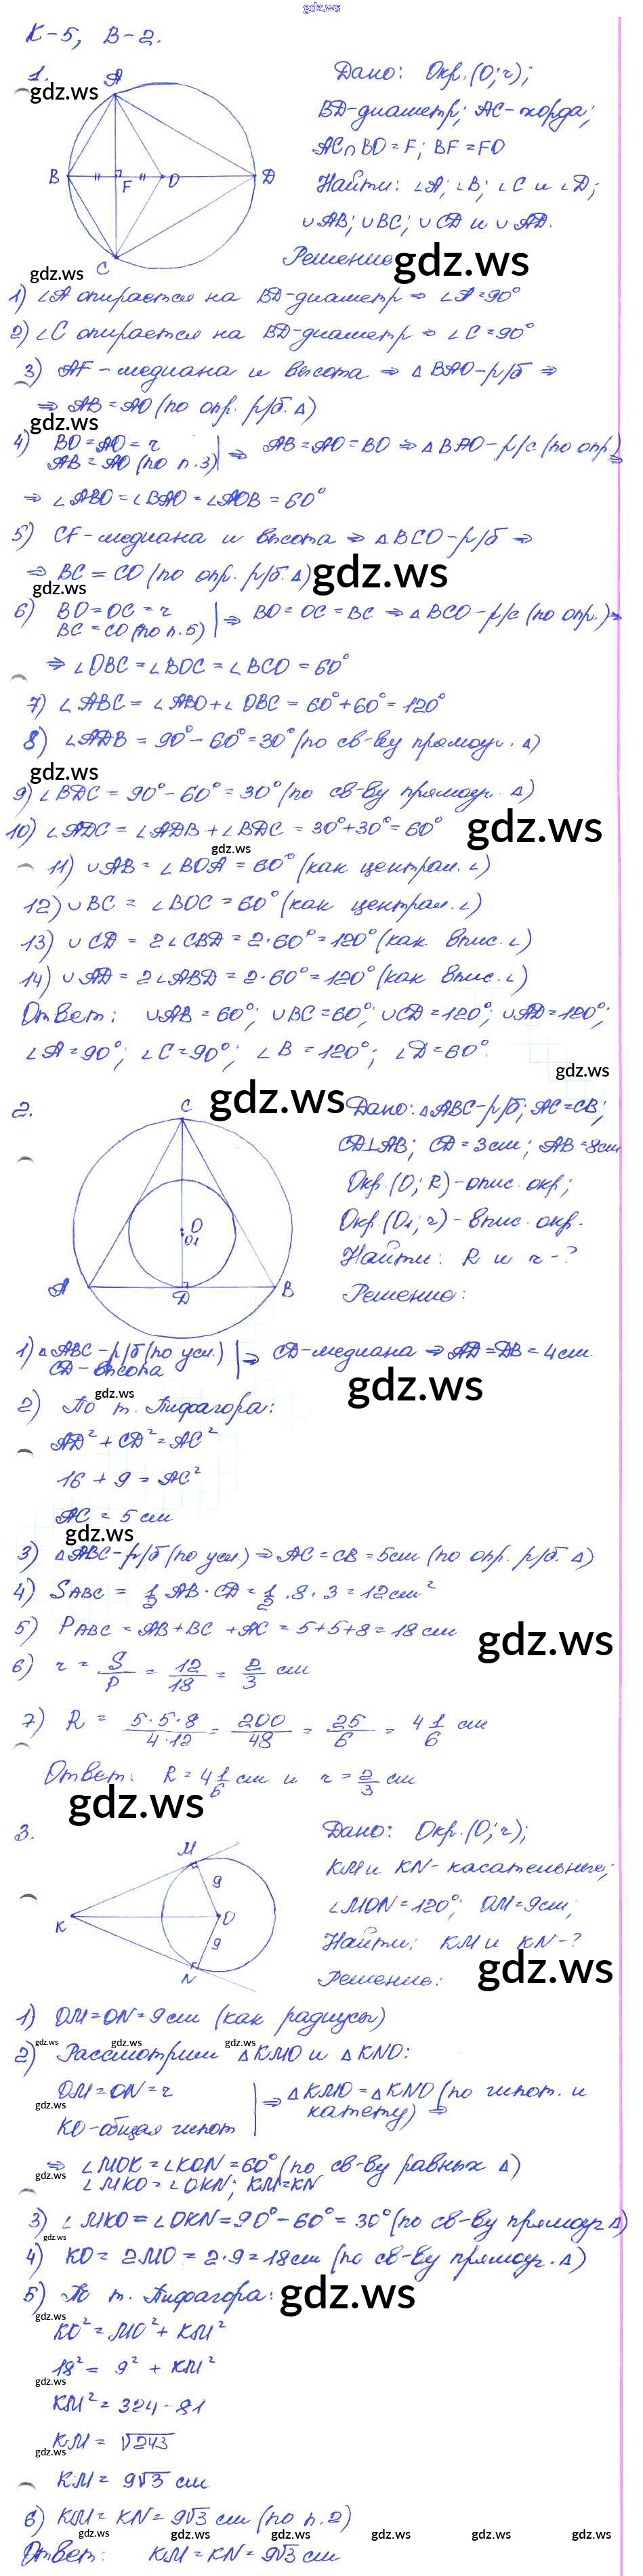 gdz.ws
К-5, В-2.
1.
gdz.ws
A
B
F
O
D
C
Дано: Окр.(O; r);
BD-диаметр; AC-хорда;
AC∩BO=F; BF=FO
Найти: ∠A; ∠B; ∠C и ∠D;
∪AB; ∪BC; ∪CD и ∪AD.
Решение
gdz.ws
gdz.ws
1) ∠A опирается на BD-диаметр ⇒ ∠A=90°
2) ∠C опирается на BD-диаметр ⇒ ∠C=90°
3) AF-медиана и высота ⇒ ΔBAO-р/б ⇒
⇒ AB=AO (по опр. р/б. Δ)
gdz.ws
4) BO=AO=r
AB=AO (по п.3) | ⇒ AB=AO=BO ⇒ ΔBAO-р/с (по опр.) ⇒
⇒ ∠ABO=∠BAO=∠AOB=60°
5) CF-медиана и высота ⇒ ΔBCO-р/б ⇒
⇒ BC=CO (по опр. р/б. Δ)
gdz.ws
gdz.ws
6) BO=OC=r
BC=CO (по п.5) | ⇒ BO=OC=BC ⇒ ΔBCO-р/с (по опр.) ⇒
⇒ ∠OBC=∠BOC=∠BCO=60°
7) ∠ABC=∠ABO+∠OBC=60°+60°=120°
8) ∠ADB=90°-60°=30° (по св-ву прямоуг. Δ)
gdz.ws
9) ∠BDC=90°-60°=30° (по св-ву прямоуг. Δ)
10) ∠ADC=∠ADB+∠BDC=30°+30°=60°
gdz.ws
gdz.ws
11) ∪AB=∠BOA=60° (как централ. ∠)
12) ∪BC=∠BOC=60° (как централ. ∠)
13) ∪CD=2∠CBD=2·60°=120° (как впис. ∠)
14) ∪AD=2∠ABD=2·60°=120° (как впис. ∠)
Ответ: ∪AB=60°; ∪BC=60°; ∪CD=120°; ∪AD=120°;
∠A=90°; ∠C=90°; ∠B=120°; ∠D=60°.
gdz.ws
gdz.ws
2.
C
O
O1
A
D
B
Дано: ΔABC-р/б; AC=CB;
CD⊥AB; CD=3см; AB=8см
Окр.(O; R)-опис. окр;
Окр.(O1; r)-впис. окр.
Найти: R и r-?
Решение:
1) ΔABC-р/б (по усл.)
CD-высота | ⇒ CD-медиана ⇒ AD=DB=4см
gdz.ws
gdz.ws
2) По т. Пифагора:
AD²+CD²=AC²
16+9=AC²
AC=5см
gdz.ws
3) ΔABC-р/б (по усл.) ⇒ AC=CB=5см (по опр. р/б. Δ)
4) SABC=1/2 AB·CD=1/2·8·3=12см²
5) PABC=AB+BC+AC=5+5+8=18см
gdz.ws
6) r=S/P=12/18=2/3 см
7) R=5·5·8/4·12=200/48=25/6=4 1/6 см
Ответ: R=4 1/6 см и r=2/3 см
gdz.ws
3.
M
9
K
O
9
N
Дано: Окр.(O; r);
KM и KN-касательные;
∠MON=120°; OM=9см;
Найти: KM и KN-?
gdz.ws
Решение:
1) OM=ON=9см (как радиусы)
gdz.ws gdz.ws gdz.ws
2) Рассмотрим ΔKMO и ΔKNO:
OM=ON=r
gdz.ws
KO-общая гипот | ⇒ ΔKMO=ΔKNO (по гипот. и
катету) ⇒
⇒ ∠MOK=∠KON=60° (по св-ву равных Δ)
gdz.ws
∠MKO=∠OKN; KM=KN
3) ∠MKO=∠OKN=90°-60°=30° (по св-ву прямоуг Δ)
gdz.ws
4) KO=2MO=2·9=18см (по св-ву прямоуг. Δ)
5) По т. Пифагора:
gdz.ws
gdz.ws
KO²=MO²+KM²
18²=9²+KM²
gdz.ws
KM²=324-81
KM=√243
gdz.ws
KM=9√3 см
6) KM=KN=9√3 см (по п.2)
gdz.ws gdz.ws gdz.ws gdz.ws gdz.ws gdz.ws
Ответ: KM=KN=9√3 см